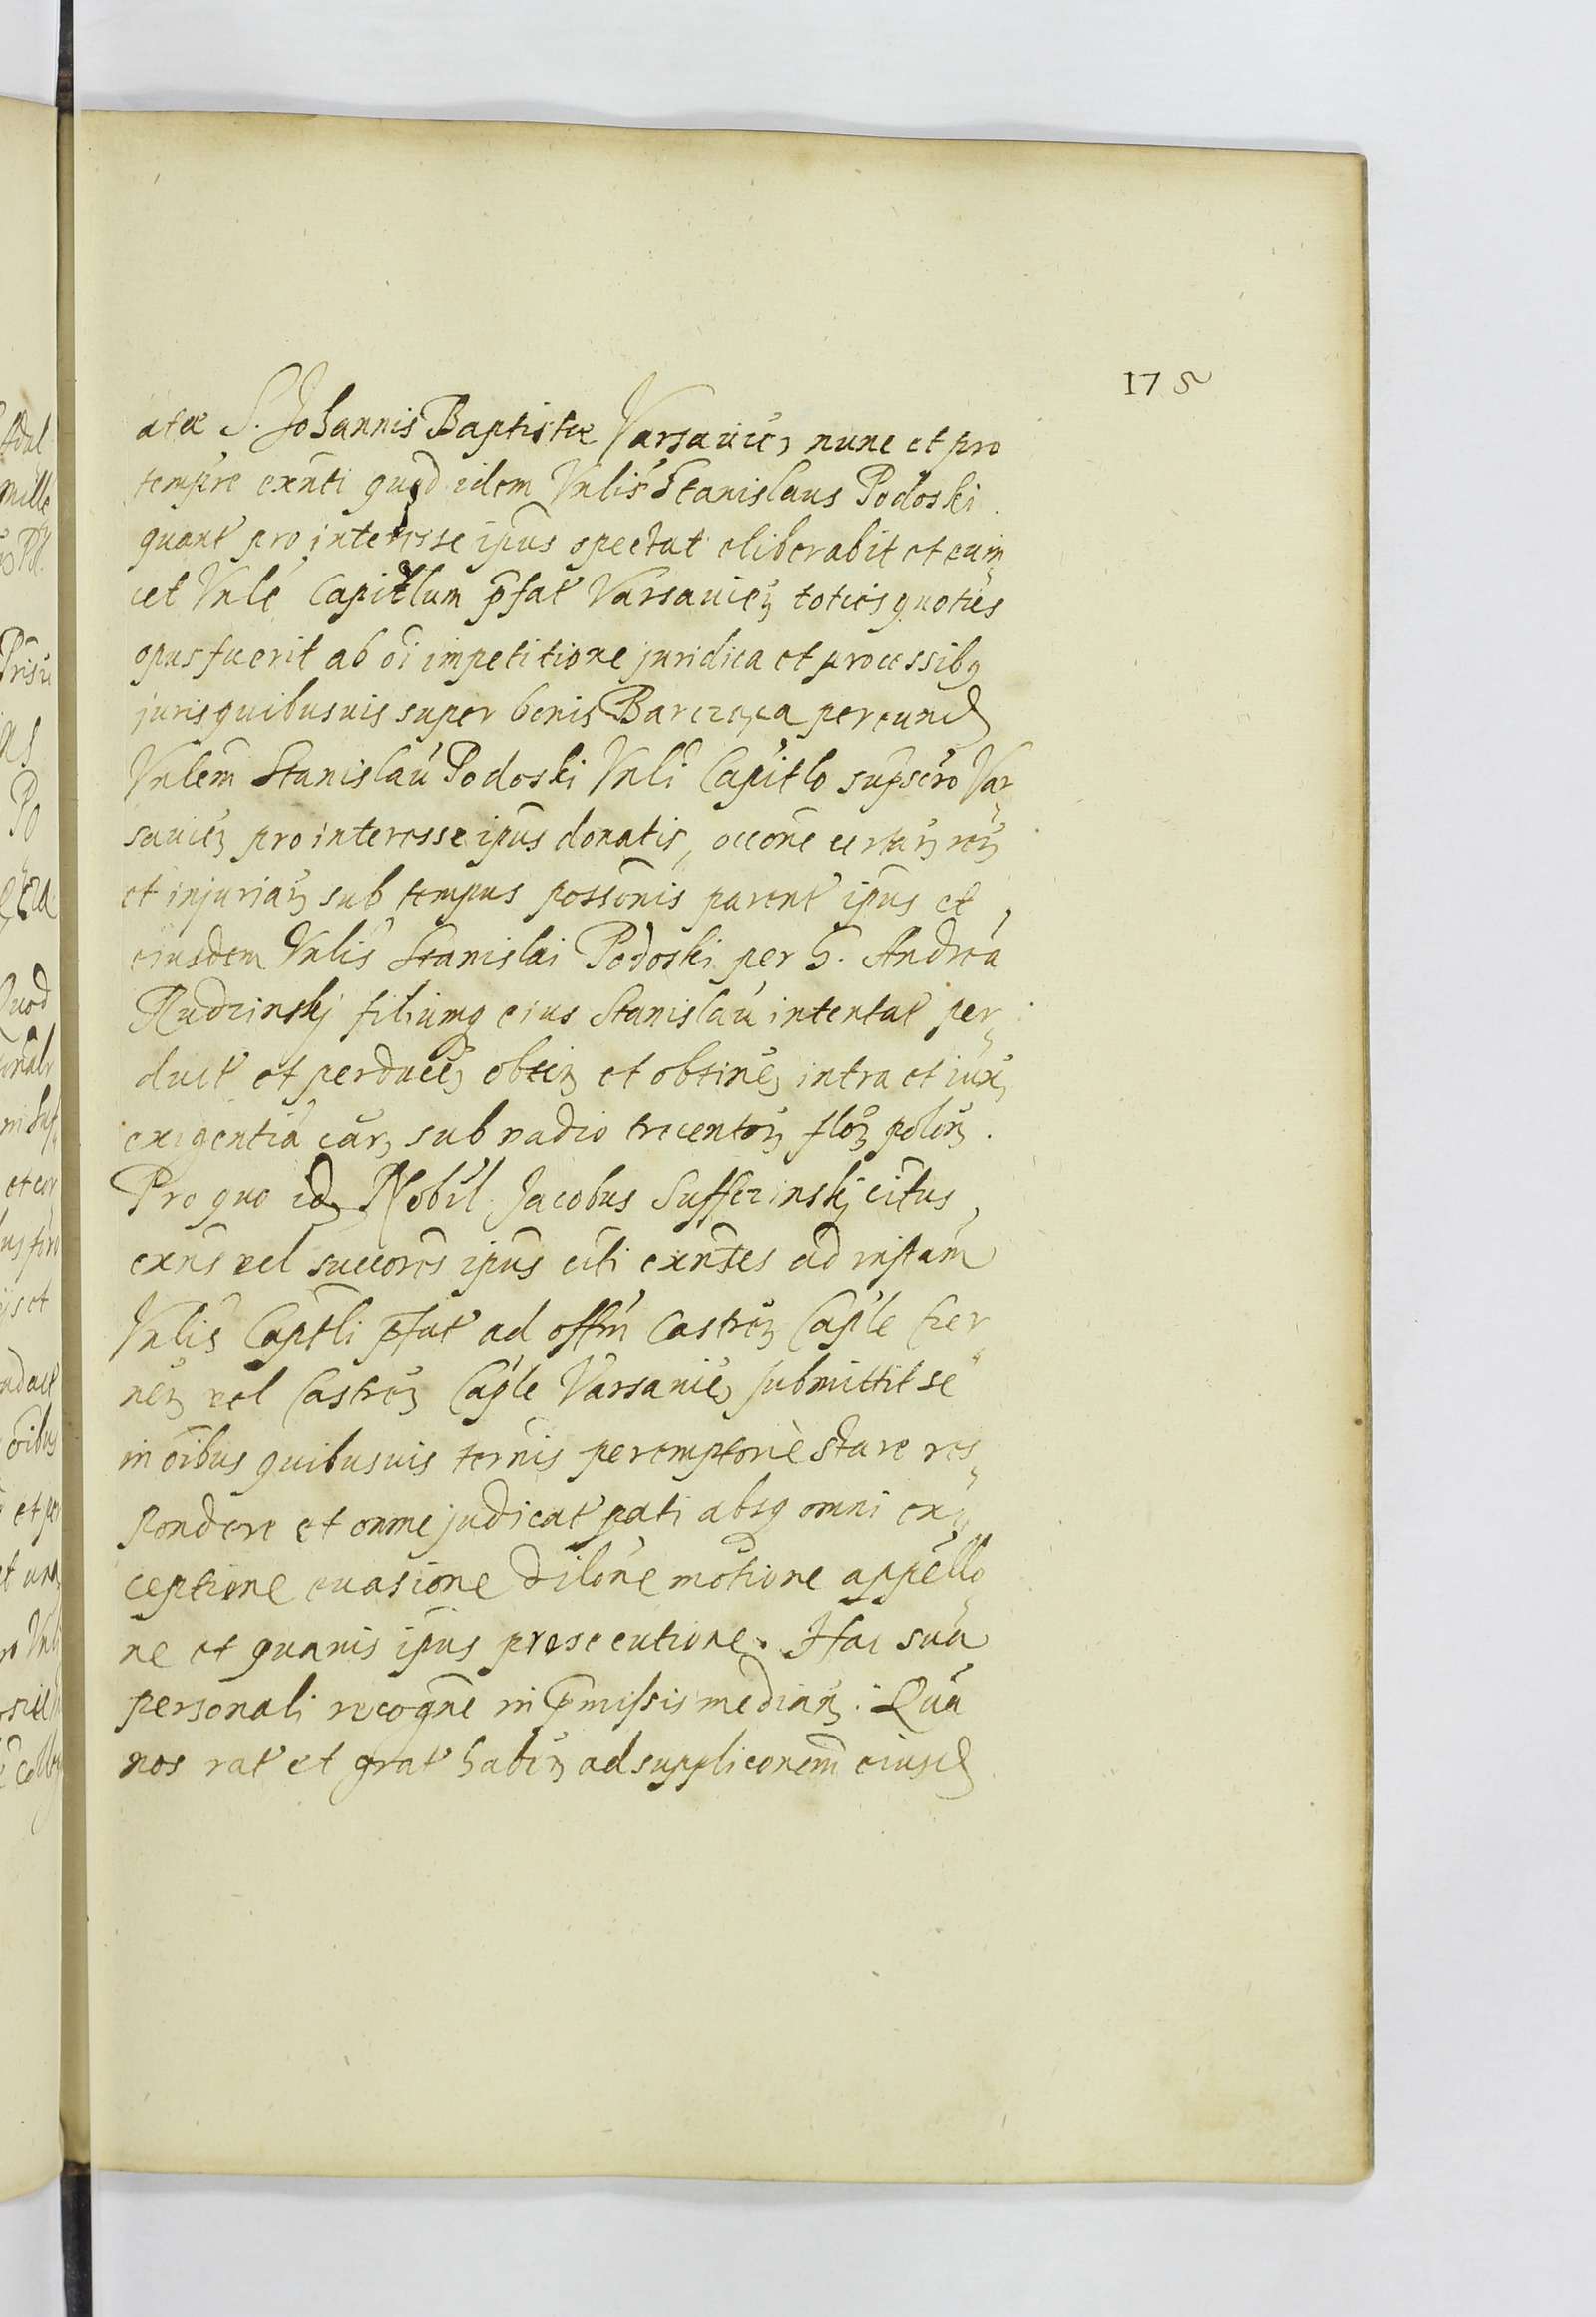 175
atæ S. Johannis Baptistæ Varsavień nunc et pro
tempre exnti quod idem Vnlis Stanislaus Podoski
quant pro interesse ipus spectat eliberabit et eum
cet Vnle Capitlum pfat Varsavień toties quoties
opus fuerit ab oi impetitione juridica et processibq
juris quibusuis super bonis Barcząca per eund
Vnlem Stanislaũ Podoski Vnli Capitlo supscro Var
savień pro interesse ipus donatis, occone certarũ rerũ
et injuriarũ sub tempus possonis parent ipus et
eiusdem Vnlis Stanislai Podoski per G. Andreã
Rudzinskj filiumq eius Stanislaũ intentat per
duct et perduceń obten et obtineń intra et iux
exigentiã earũ sub vadio trecentorũ floŕ poloń.
Pro quo idẽ Nobil Jacobus Suffczinskj citus
exns vel succores ipus citi exntes ad instam
Vnlis Captli pfat ad offm Castreń Caple Czer
neń vel Castreń Caple Varsavień submittit se
in oibus quibusuis ternis peremptoriè stare res
pondere et omne judicat pati absq omni ex
ceptione evasione dilone motione appello
ne et quavis ipus prosecutione. Hac sua
personali recogne in pmissis median. Quã
nos rat et grat haben ad suppliconem eiusd